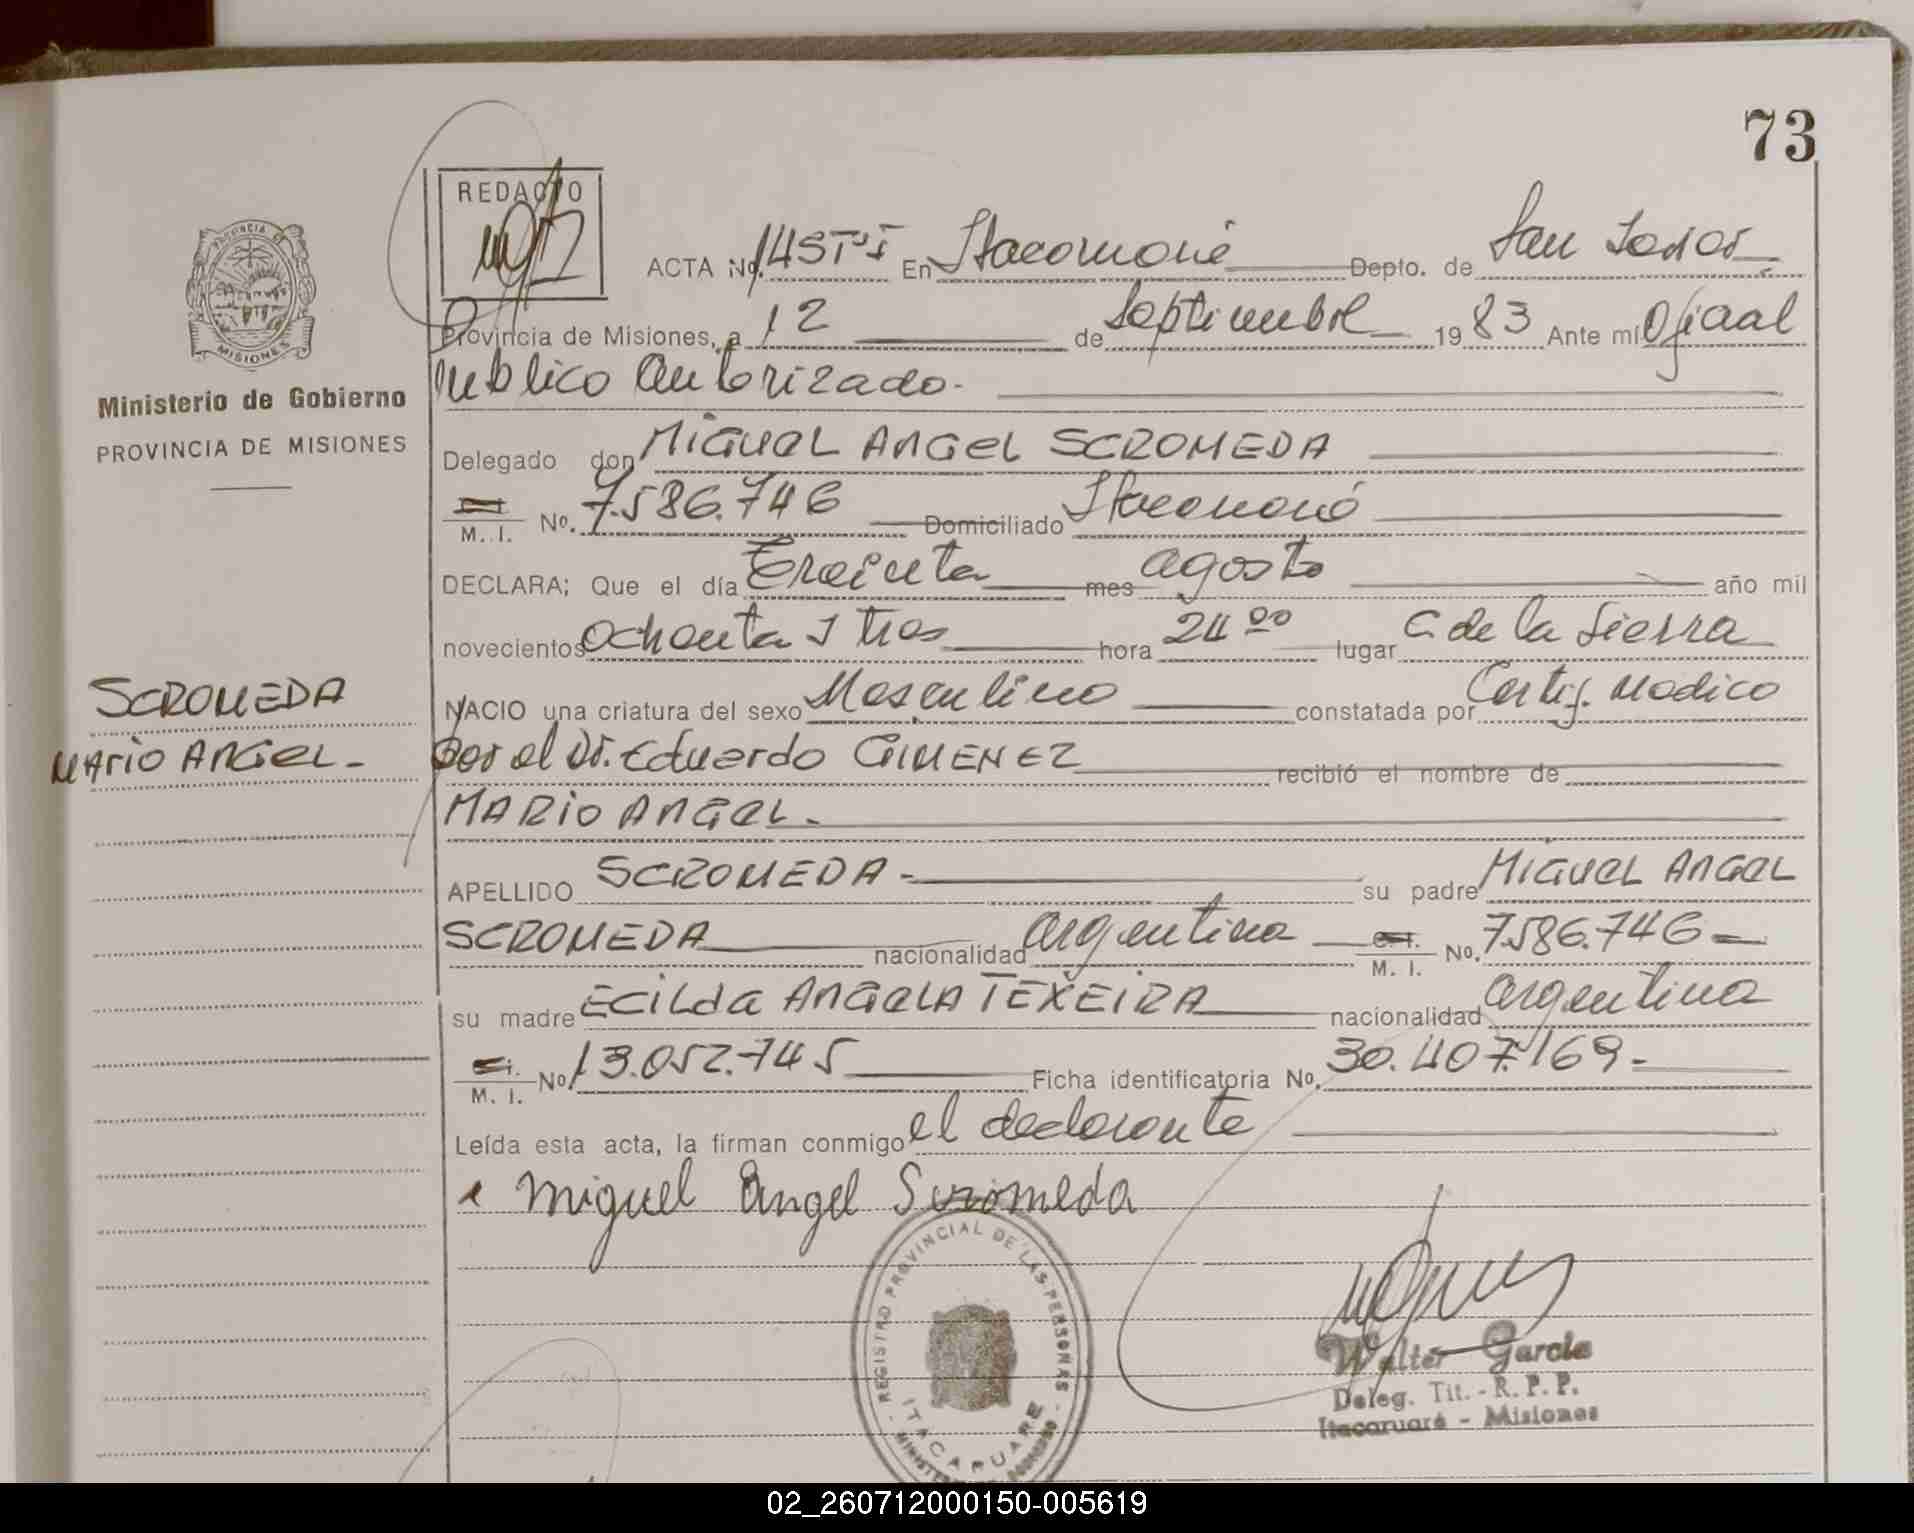 73
PROVINCIA DE
MISIONES
Ministerio de Gobierno
PROVINCIA DE MISIONES
REDACTO
ACTA No. 145 T'I En Itacaruaré Depto. de San Javier
Provincia de Misiones, a 12 de Septiembre 1983 Ante mí Oficial
Publico Autorizado.-
Delegado don MIGUEL ANGEL SCROMEDA
M. I. No. 7.586.746 Domiciliado Itacaruaré
DECLARA; Que el día Treinta mes agosto año mil
novecientos ochenta y tres hora 24 00 lugar C. de la Sierra
NACIO una criatura del sexo Masculino constatada por Certif. Medico
por el Dr. Eduardo GIMENEZ recibió el nombre de
MARIO ANGEL.-
APELLIDO SCROMEDA- su padre MIGUEL ANGEL
SCROMEDA nacionalidad argentina C. I. M. I. No. 7.586.746-
su madre ECILda ANGELA TEXEIRA nacionalidad argentina
C. I. M. I. No 13.052.745 Ficha identificatoria No. 30.407.169-
Leída esta acta, la firman conmigo el declarante
Miguel Angel Scromeda
SCROMEDA
MARIO ANGEL-
REGISTRO PROVINCIAL DE LAS PERSONAS
ITACARUARE
Walter Garcia
Deleg. Tit. - R. P. P.
Itacaruaré - Misiones
02_260712000150-005619